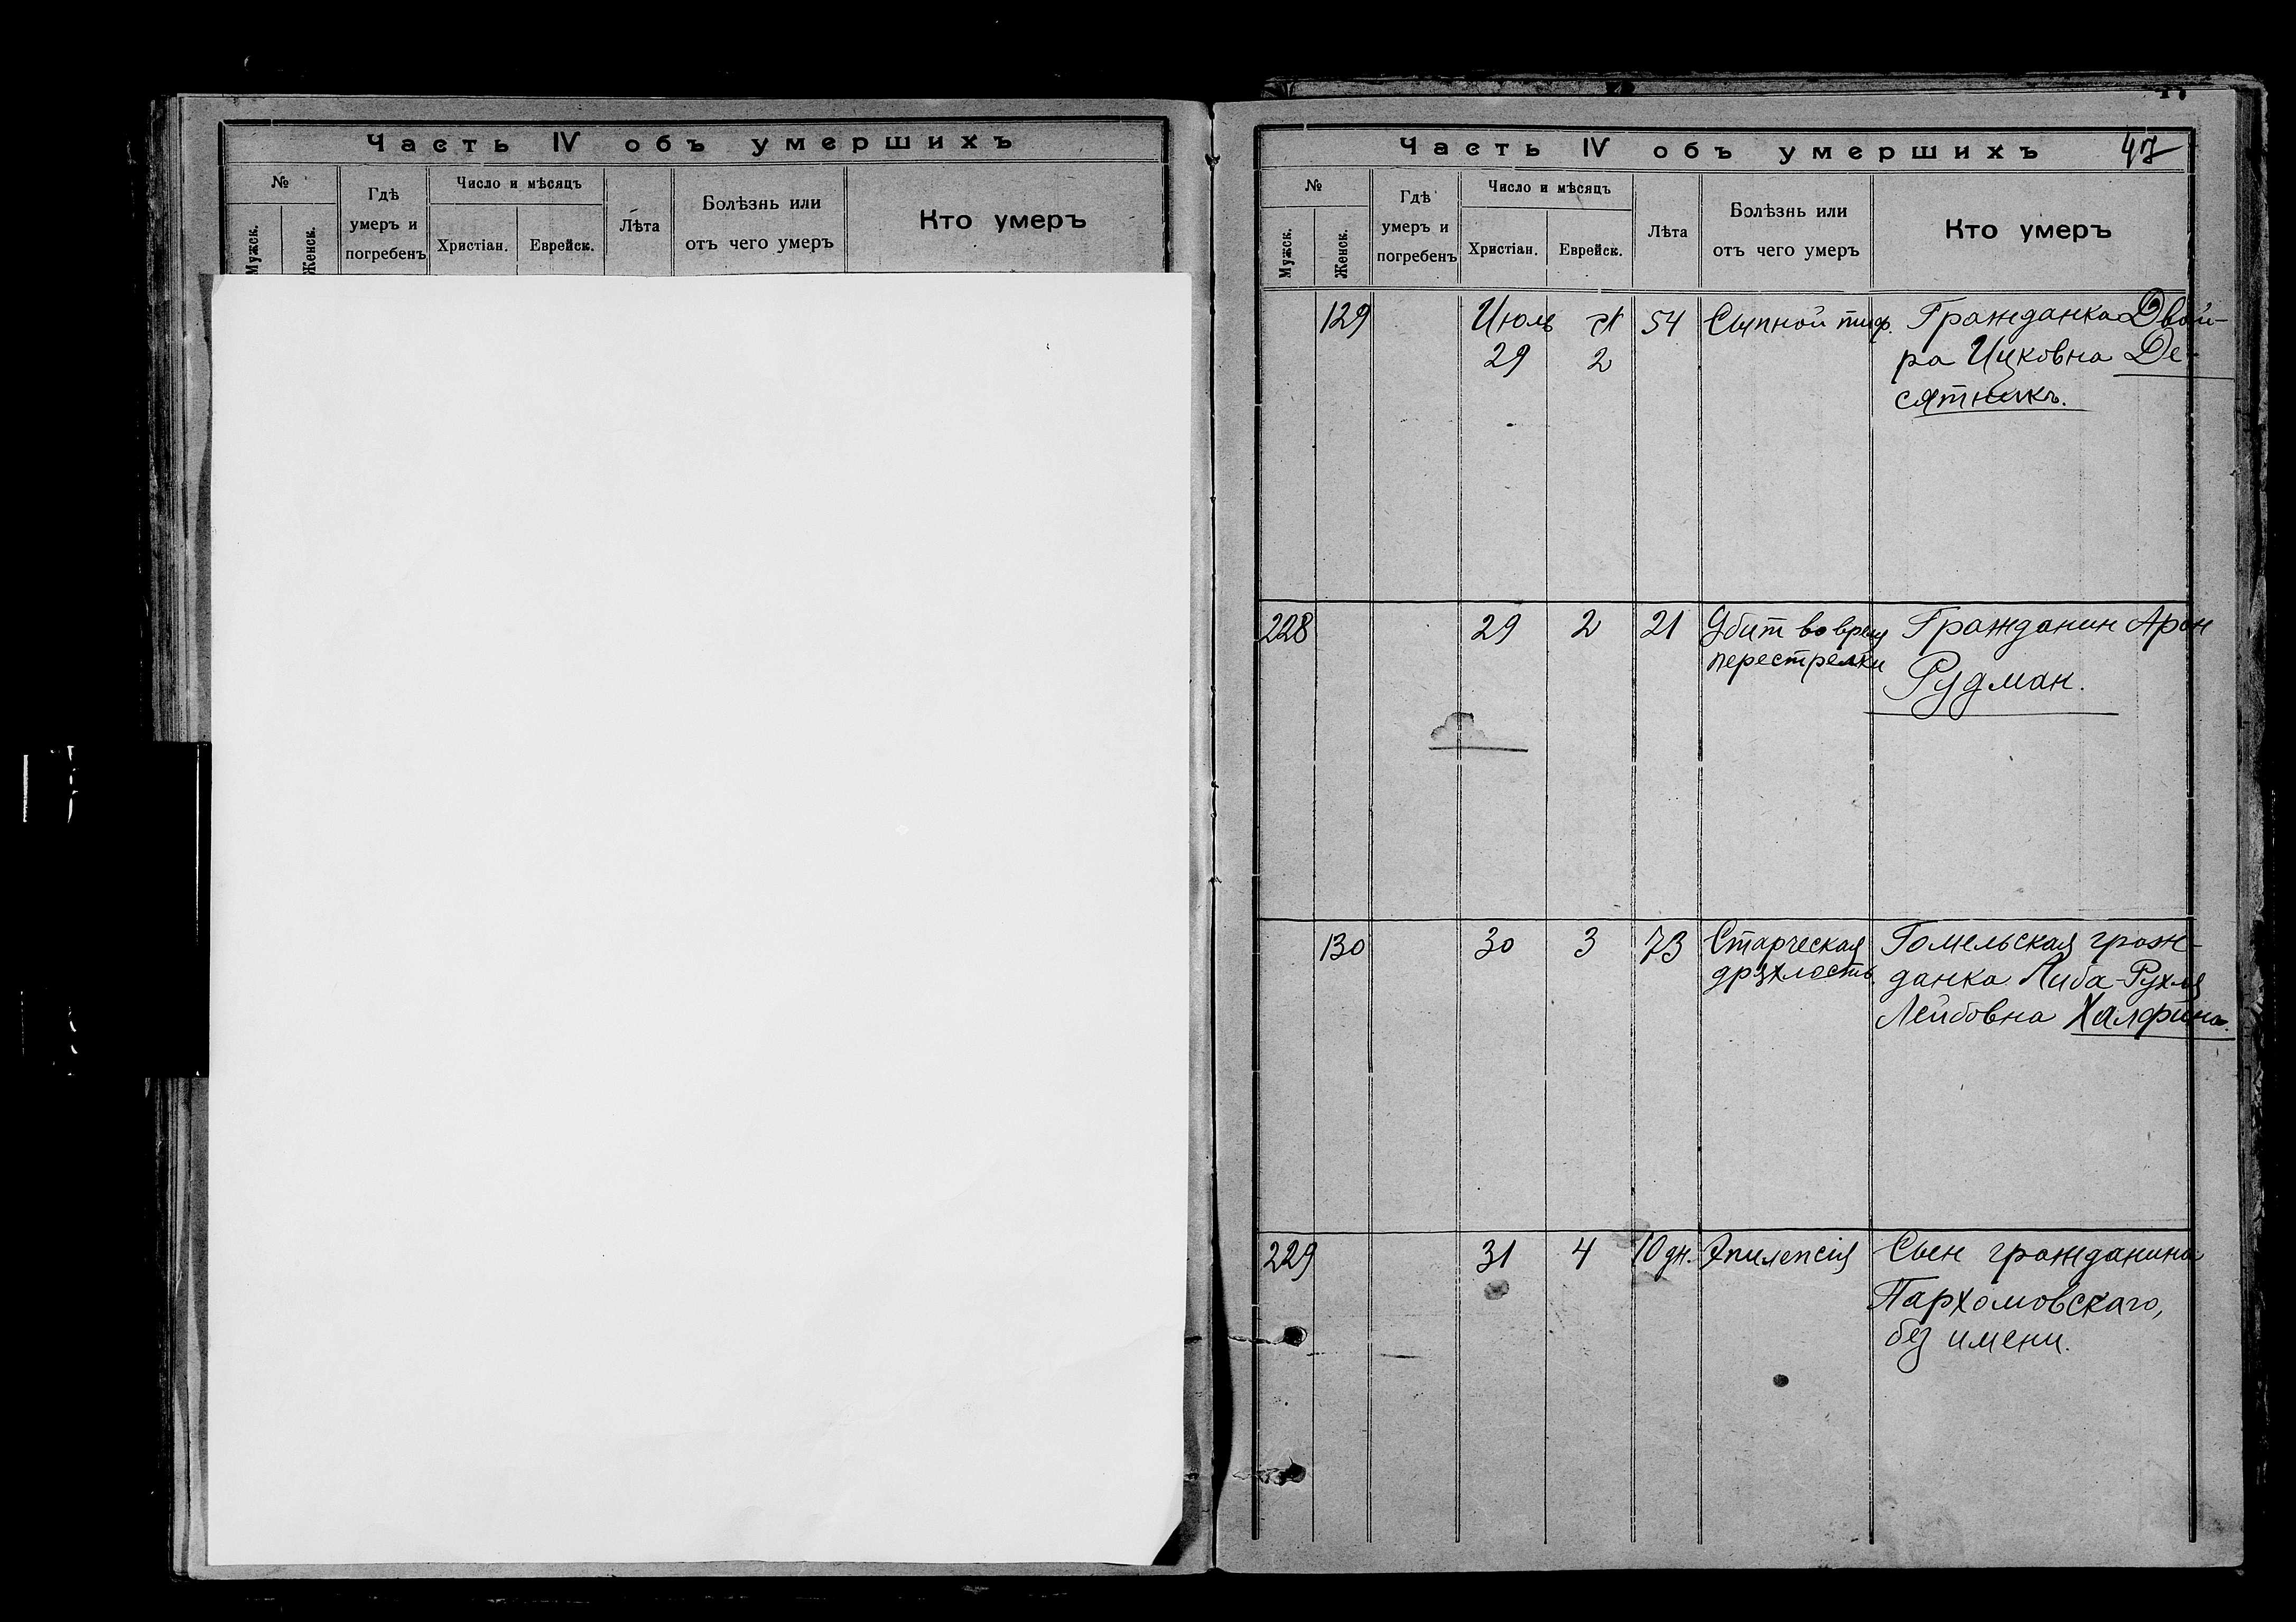 Часть IV объ умершихъ
№
Мужск.
Женск.
Гдѣ
умеръ и
погребенъ
Число и мѣсяцъ
Христіан.
Еврейск.
Лѣта
Болѣзнь или
отъ чего умеръ
Кто умеръ
Часть IV объ умершихъ
47
№
Мужск.
Женск.
Гдѣ
умеръ и
погребенъ
Число и мѣсяцъ
Христіан.
Еврейск.
Лѣта
Болѣзнь или
отъ чего умеръ
Кто умеръ
129 Июль 54 Сыпной тиф. Гражданка Двой-
29 2 ра Ицковна Де-
сятникъ.
228 29 2 21 Убит во время Гражданин Арон
перестрелки Рудман.
130 30 3 73 Старческая Гомельская граж-
дряхлость. данка Либа-Рухля
Лейбовна Халфина.
229 31 4 10 дн. Эпилепсія Сын гражданина
Пархомовскаго,
без имени.